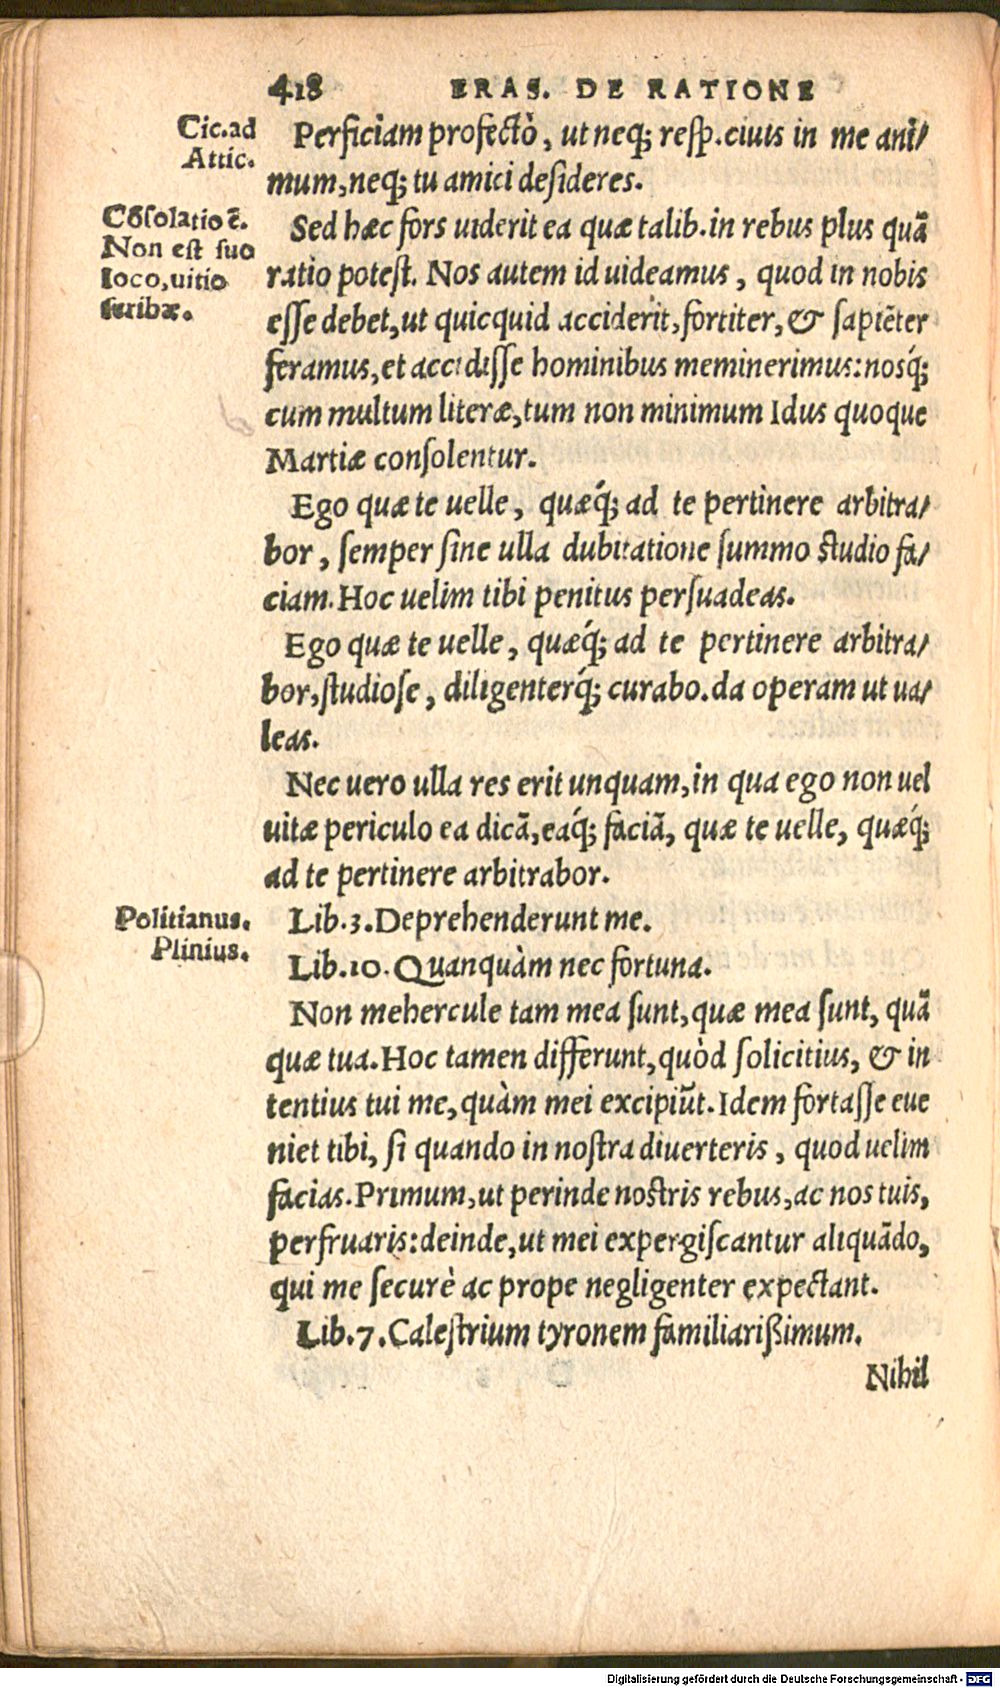 418 ERAS. DE RATIONE
Cic. ad
Attic.
Perficiam profectò, ut neq; resp. ciuis in me ani/
mum, neq; tu amici desideres.
Cõsolatio ẽ.
Non est suo
loco, uitio
scribæ.
Sed hæc fors uiderit ea quæ talib. in rebus plus quã
ratio potest. Nos autem id uideamus, quod in nobis
esse debet, ut quicquid acciderit, fortiter, & sapiẽter
feramus, et accidisse hominibus meminerimus: nosq́;
cum multum literæ, tum non minimum Idus quoque
Martiæ consolentur.
Ego quæ te uelle, quæq́; ad te pertinere arbitra/
bor, semper sine ulla dubitatione summo studio fa/
ciam. Hoc uelim tibi penitus persuadeas.
Ego quæ te uelle, quæq́; ad te pertinere arbitra/
bor, studiose, diligenterq́; curabo. da operam ut ua/
leas.
Nec uero ulla res erit unquam, in qua ego non uel
uitæ periculo ea dicã, eaq́; faciã, quæ te uelle, quæq́;
ad te pertinere arbitrabor.
Politianus.
Plinius.
Lib. 3. Deprehenderunt me.
Lib. 10. Quanquàm nec fortuna.
Non mehercule tam mea sunt, quæ mea sunt, quã
quæ tua. Hoc tamen differunt, quòd solicitius, & in
tentius tui me, quàm mei excipiũt. Idem fortasse eue
niet tibi, si quando in nostra diuerteris, quod uelim
facias. Primum, ut perinde nostris rebus, ac nos tuis,
perfruaris: deinde, ut mei expergiscantur aliquãdo,
qui me securè ac prope negligenter expectant.
Lib. 7. Calestrium tyronem familiarißimum.
Nihil
Digitalisierung gefördert durch die Deutsche Forschungsgemeinschaft - DFG